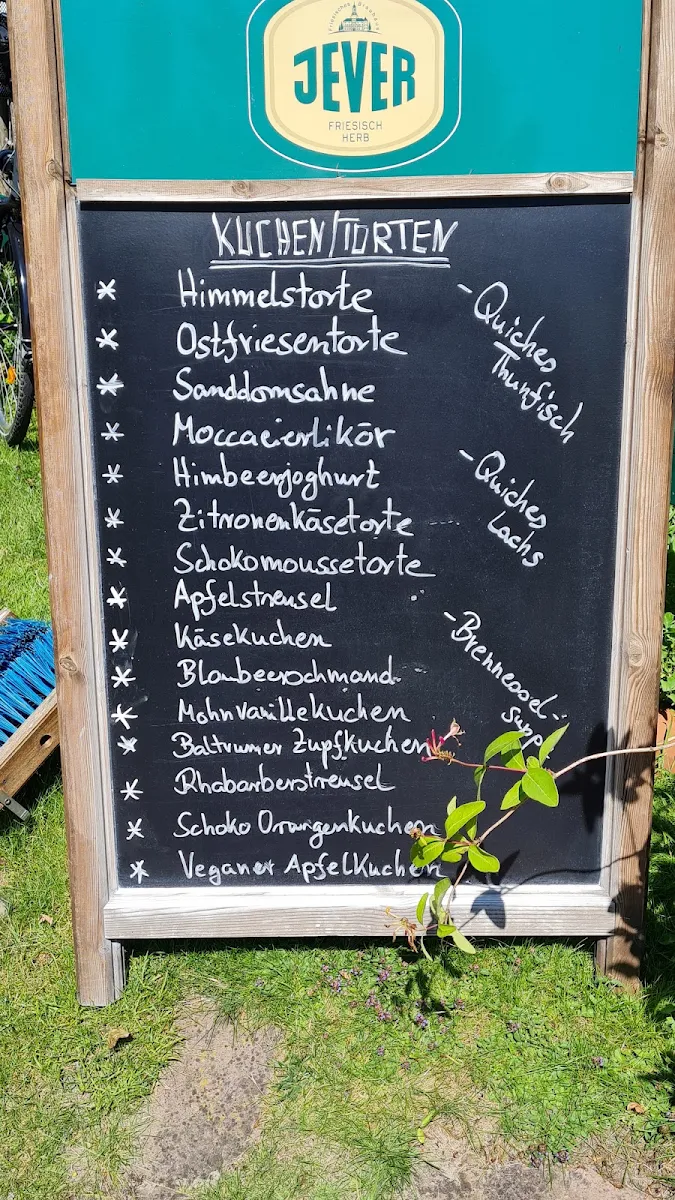 Friesisches Brauhaus
JEVER
FRIESISCH
HERB
KUCHEN/TORTEN
* Himmelstorte
* Ostfriesentorte
* Sanddornsahne
* Moccaeierlikör
* Himbeerjoghurt
* Zitronenkäsetorte
* Schokomoussetorte
* Apfelstreusel
* Käsekuchen
* Blaubeerschmand
* Mohnvanillekuchen
* Baltrumer Zupfkuchen
* Rhabarberstreusel
* Schoko Orangenkuchen
* Veganer Apfelkuchen
- Quiches
Thunfisch
- Quiches
Lachs
- Brennessel-
supp